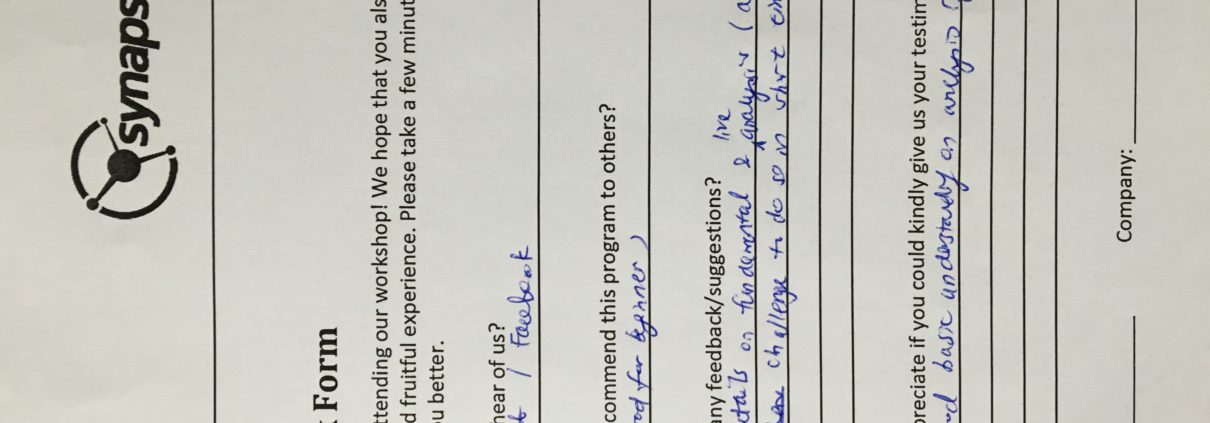 synaps
Form
ttending our workshop! We hope that you als
d fruitful experience. Please take a few minut
u better.
hear of us?
/ Facebook
commend this program to others?
od for beginner)
any feedback/suggestions?
live
etails on fundamental & analysis (a
challenge to do so in short tim
preciate if you could kindly give us your testim
basic understandy on analysis
Company: